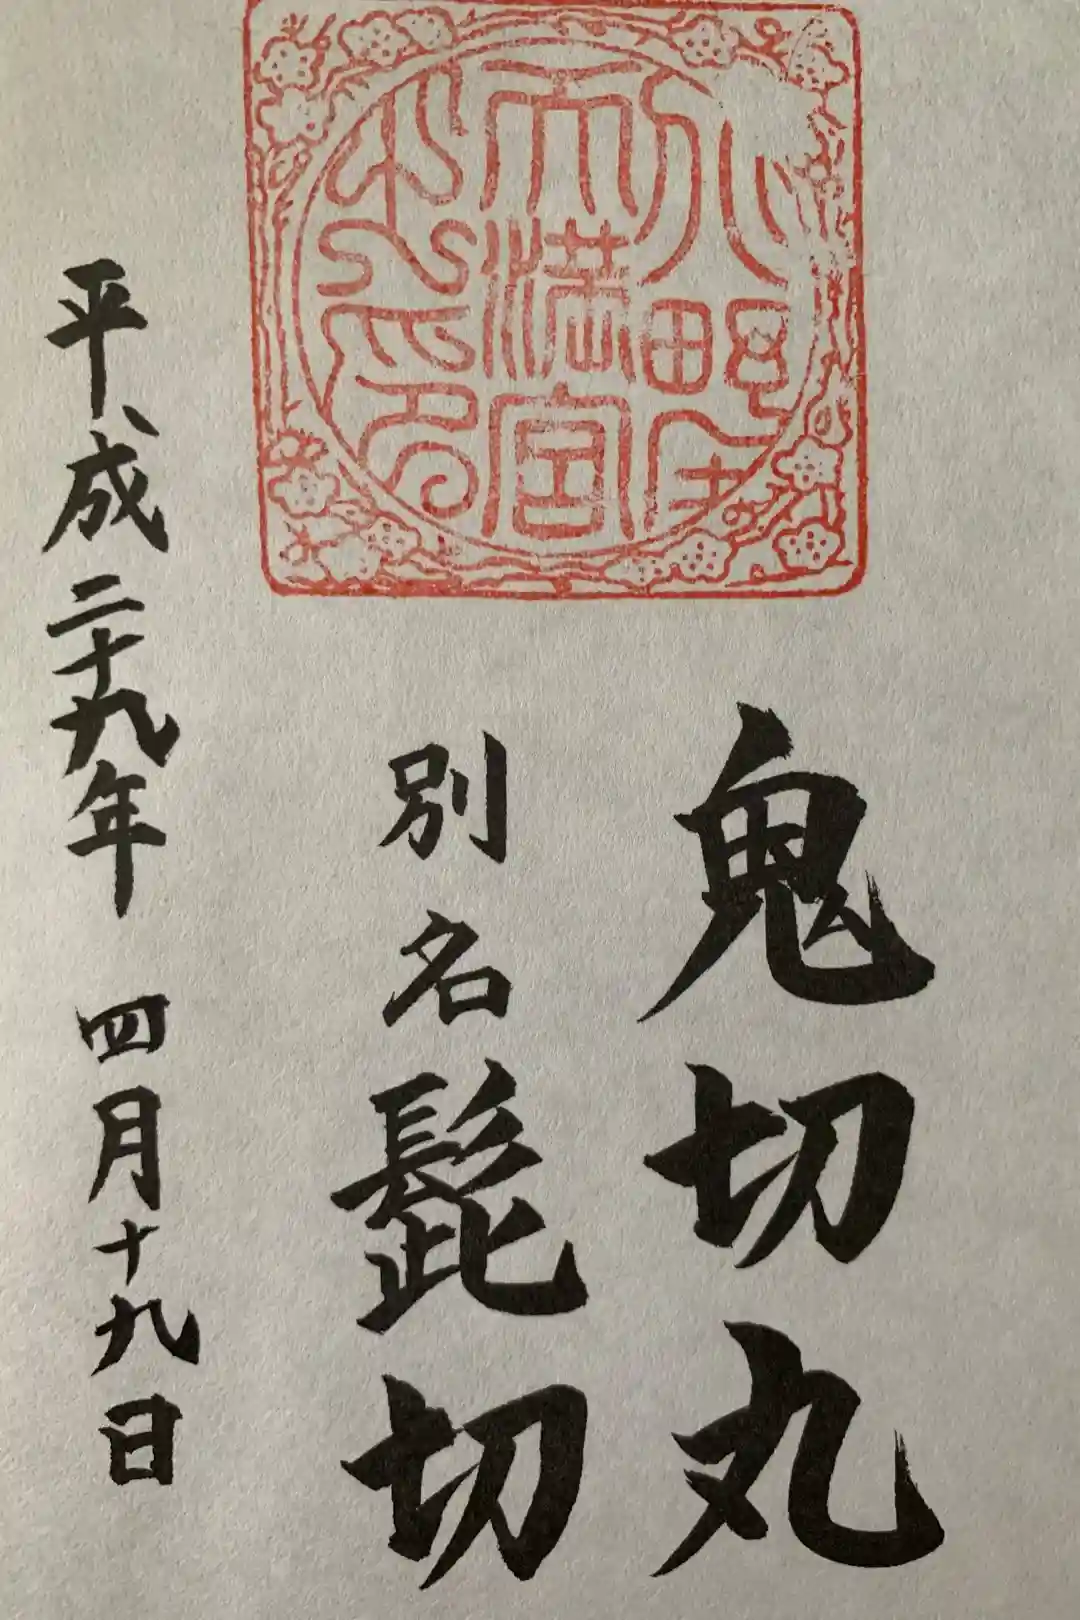 北野
天満宮
之印
鬼切丸
別名髭切
平成二十九年 四月十九日